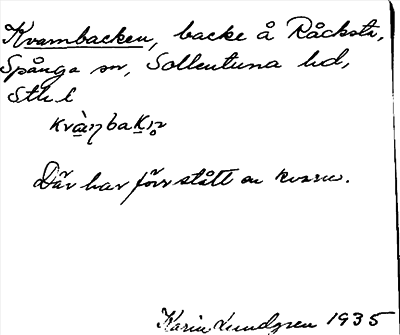 Kvarnbacken, backe å Råcksta,
Spånga sn, Sollentuna hd,
Sth. l
kvà̱ɳbaḵn̥
Där har förr stått en kvarn.
Karin Lundgren 1935